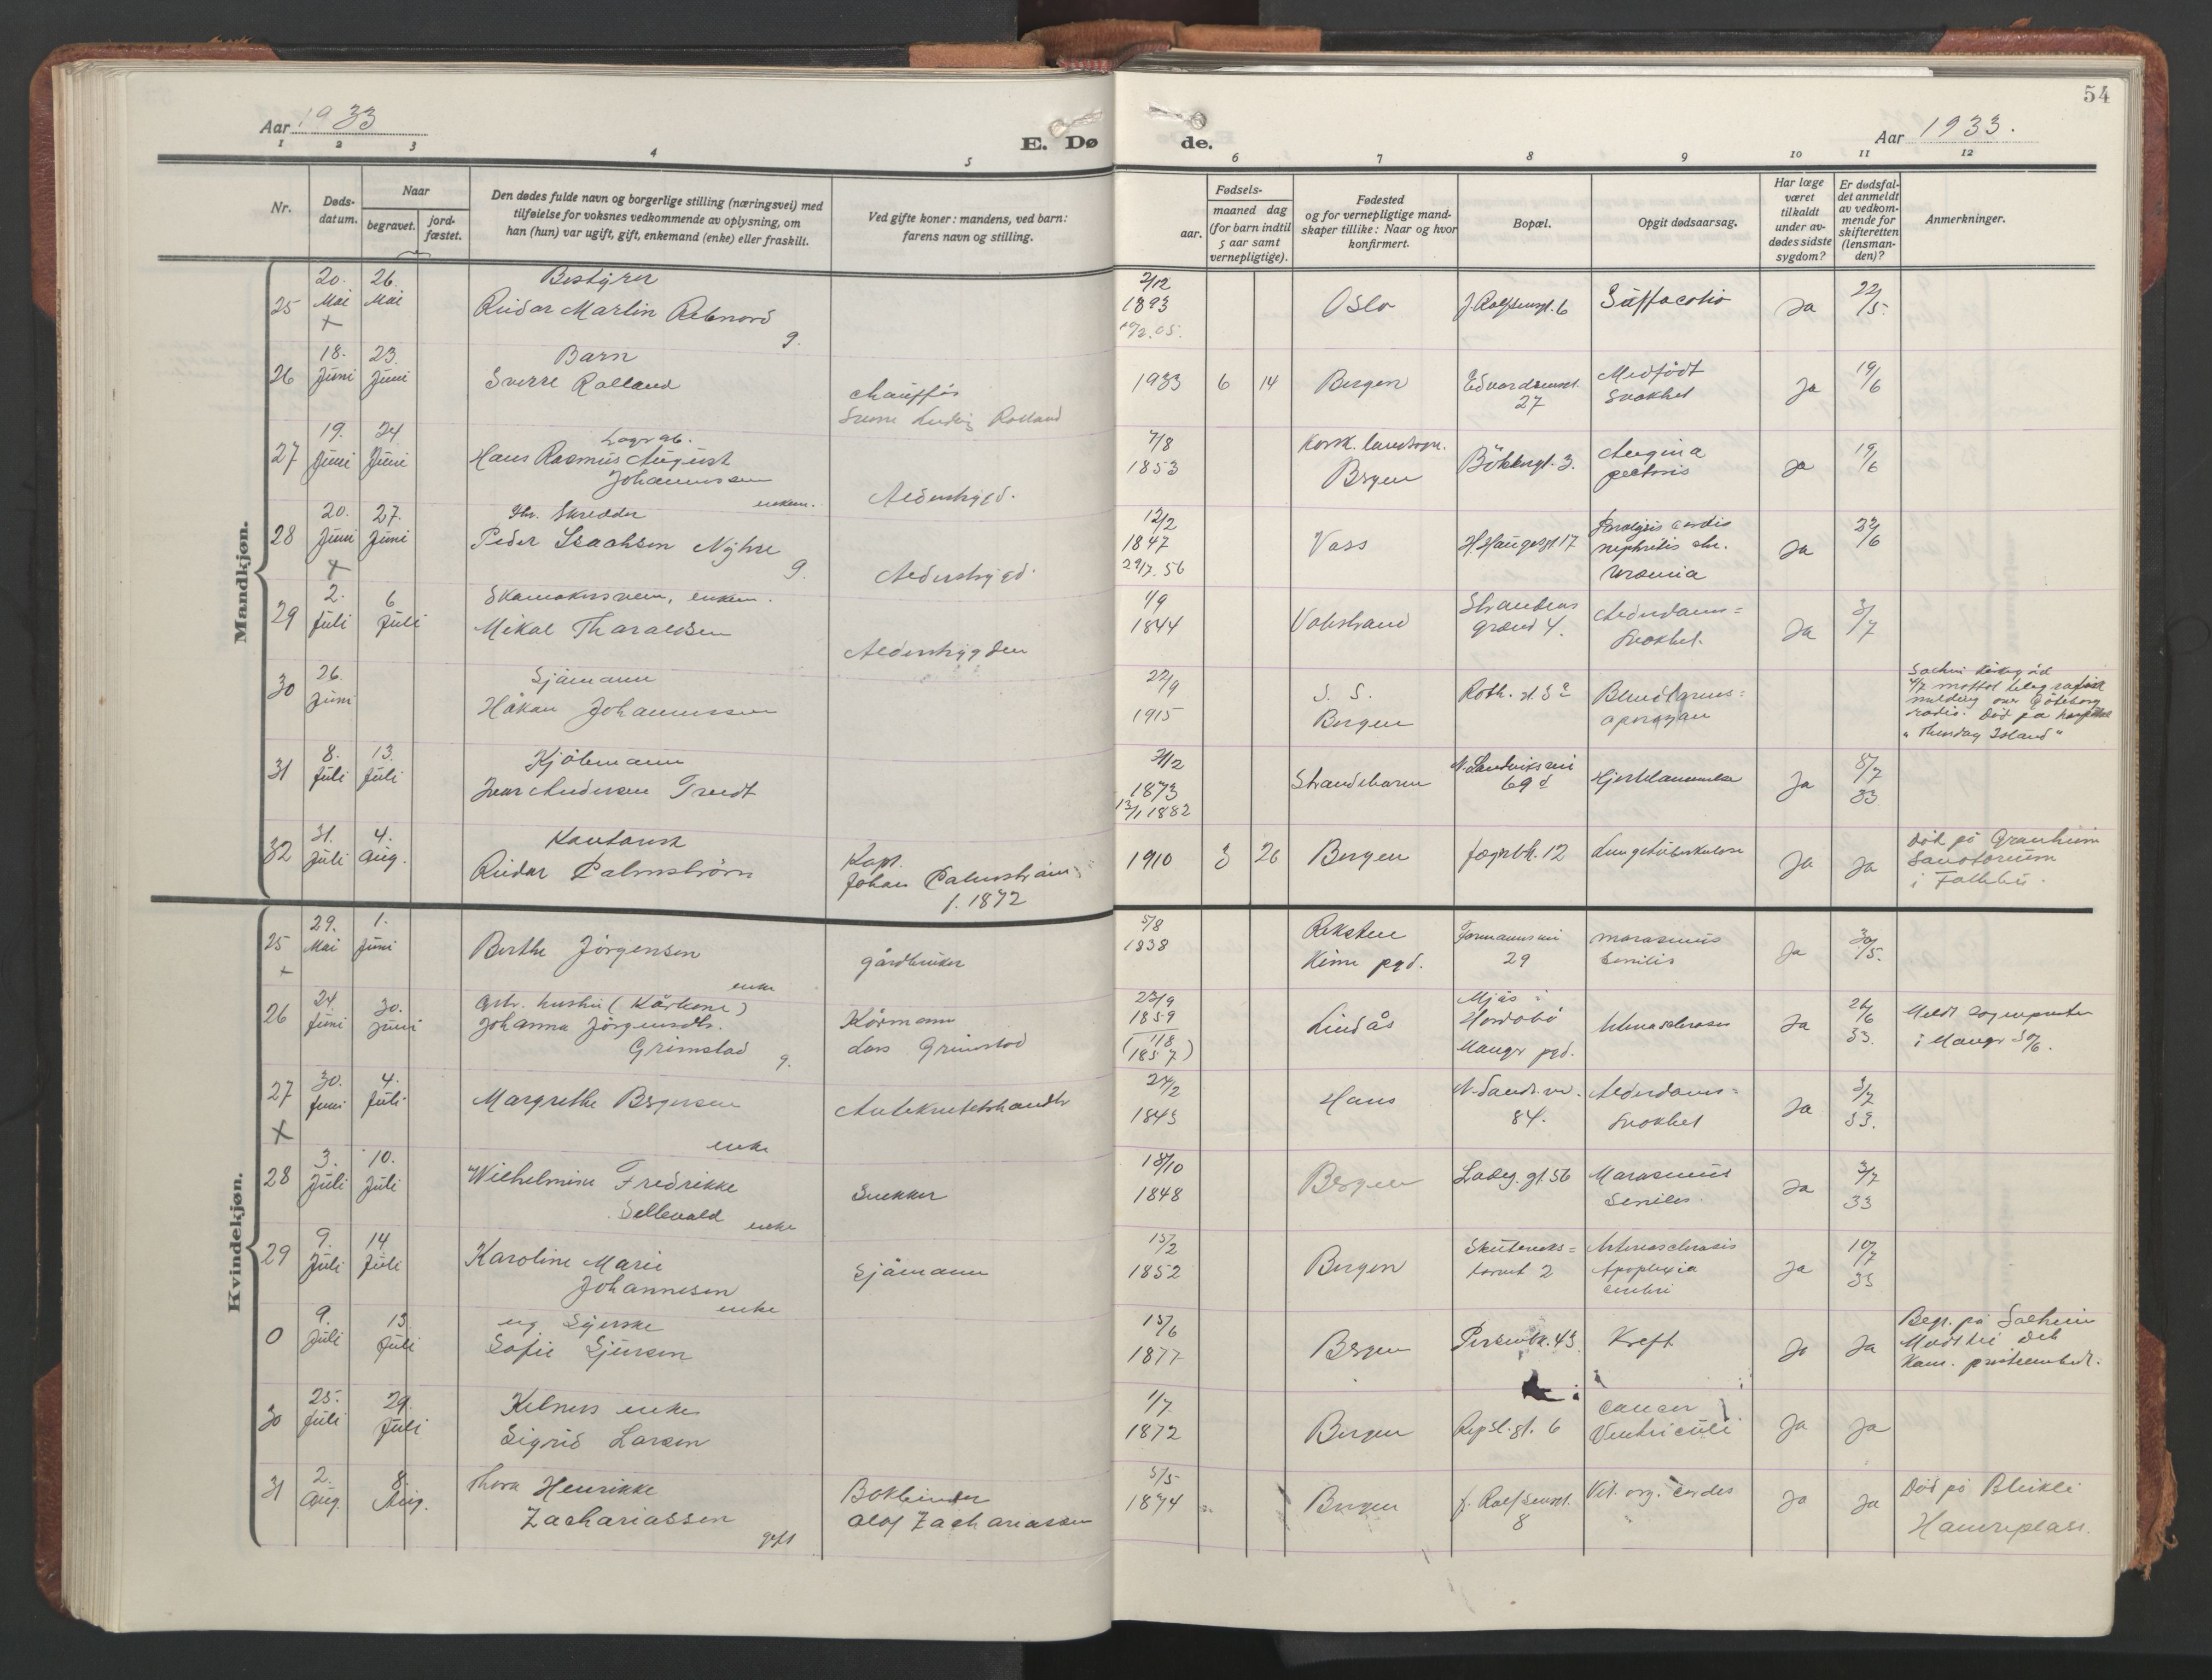 54
Aar 1933
E. Dø
de.
Aar 1933.
1 2 3 4 5 6 7 8 9 10 11 12
Nr.
Døds-
datum.
Naar
begravet.
jord-
fæstet.
Den dødes fulde navn og borgerlige stilling (næringsvei) med
tilføielse for voksnes vedkommende av oplysning, om
han (hun) var ugift, gift, enkemand (enke) eller fraskilt.
Ved gifte koner: mandens, ved barn:
farens navn og stilling.
Fødsels-
aar.
maaned dag
(for barn indtil
5 aar samt
vernepligtige).
Fødested
og for vernepligtige mand-
skaper tillike: Naar og hvor
konfirmert.
Bopæl.
Opgit dødsaarsag.
Har læge
været
tilkaldt
under av-
dødes sidste
sygdom?
Er dødsfal-
det anmeldt
av vedkom-
mende for
skifteretten
(lensman-
den)?
Anmerkninger.
Mandkjøn.
25 20. Mai 26. Mai
Bestyrer
Reidar Martin
g.
2/12
1893
Oslo
J. Rolfsensgt. 6
Suffocatio
Ja
22/5.
26 18. Juni 23. Juni
Barn
Sverre Rolland
Chauffør
Sverre Ludvig Rolland
1933 6 14
Bergen
Edvardsensgt.
27
Medfødt
svakhet
Ja
19/6
27 19. Juni 24 Juni
Hans Rasmus August
Johannessen
enkem.
7/8
1853
Korsk. landsogn.
Bergen
Bøkkergt. 3.
Angina
pectoris
Ja
19/6
28 20. Juni 27. Juni
Skredder
Peder Isachsen Nyhre
g.
12/2
1847
29/7. 56
Voss
H. Haugesgt 17
Paralysis cordis
nephritis chr.
Uræmia
Ja
22/6
29 2. Juli 6 Juli
Skomakersvenn, enkem.
Mikal Tharaldsen
1/9
1844
Strandens
grænd 4.
Alderdoms=
svakhet.
Ja
3/7
30 26. Juni
Sjømann
Håkan Johannessen
22/9
1915
S. S.
Bergen
Blindtarms=
operasjon
Göteborg
radio. Død på
" Thursday Island "
31 8. Juli 13. Juli
Kjøbmann
Ivar Andersen Tredt
21/2
1873
13/11 1882
Strandebarm
N. Sandviksvei
69 d
Hjertelammelse
Ja
8/7
33
32 31. Juli 4. Aug.
Kontorist
Reidar Palmstrøm
Kapt.
Johan Palmstrøm
f. 1872
1910 3 26
Bergen
12
Lungetuberkulose
Ja Ja
Død på Granheim
Sanatorium
i Follebu.
Kvindekjøn.
25 29. Mai 1. Juni
Berthe Jörgensen
enke
gårdbruker
5/8
1838
Reksten
Kinn pgd.
Formannsvei
29
marasmus
senilis
Ja
30/5.
26 24. Juni 30. Juni
Johanna Jörgensdtr.
Grimstad
g.
Lars Grimstad
22/9
1859
(1/8
1857)
Lindås
Mjås i
Hordabø
Manger pgd.
Arteriosclerosis
Ja
26/6
33.
Meldt sognepresten
i Manger 30/6.
27 30. Juni 4. Juli
Margrethe Bergersen
enke
24/2
1843
Hans
N. Sandv. vei.
84.
Alderdoms=
svakhet
Ja
3/7
33.
28 3. Juli 10. Juli
Wilhelmine Fredrikke
Sellevold
enke
Snekker
18/10
1848
Bergen
Ladeg. gt. 56
Marasmus
Senilis
Ja
3/7
33
29 9. Juli 14 Juli
Karoline Marie
Johannesen
enke
Sjømann
15/2
1852
Bergen
Skuteviks=
torvet 2
Arteriosclerosis
Apoplexia
cerebri
Ja
10/7
33
0 9. Juli 13 Juli
ug. Syerske
Sofie Sjursen
15/6
1877
Bergen
Persenbk. 43
Kreft
Ja Ja
Begr. på Solheim
Meldt til
30 25. Juli 29. Juli
Kelners enke
Sigrid Larsen
1/7
1872
Bergen
Repsl. gt. 6
Cancer
Ventriculi
Ja Ja
31 2. Aug. 8. Aug.
Thora Henrikke
Zachariassen
gift
Bokbinder
Olof Zachariassen
5/5
1874
Bergen
J. Rolfsensgt.
8
Vit. org. cordis
Ja Ja
Død på Bleikli